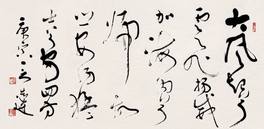 大風起兮
雲飛揚威
加海内兮
歸故
鄉安得猛
士兮守四方
庚寅